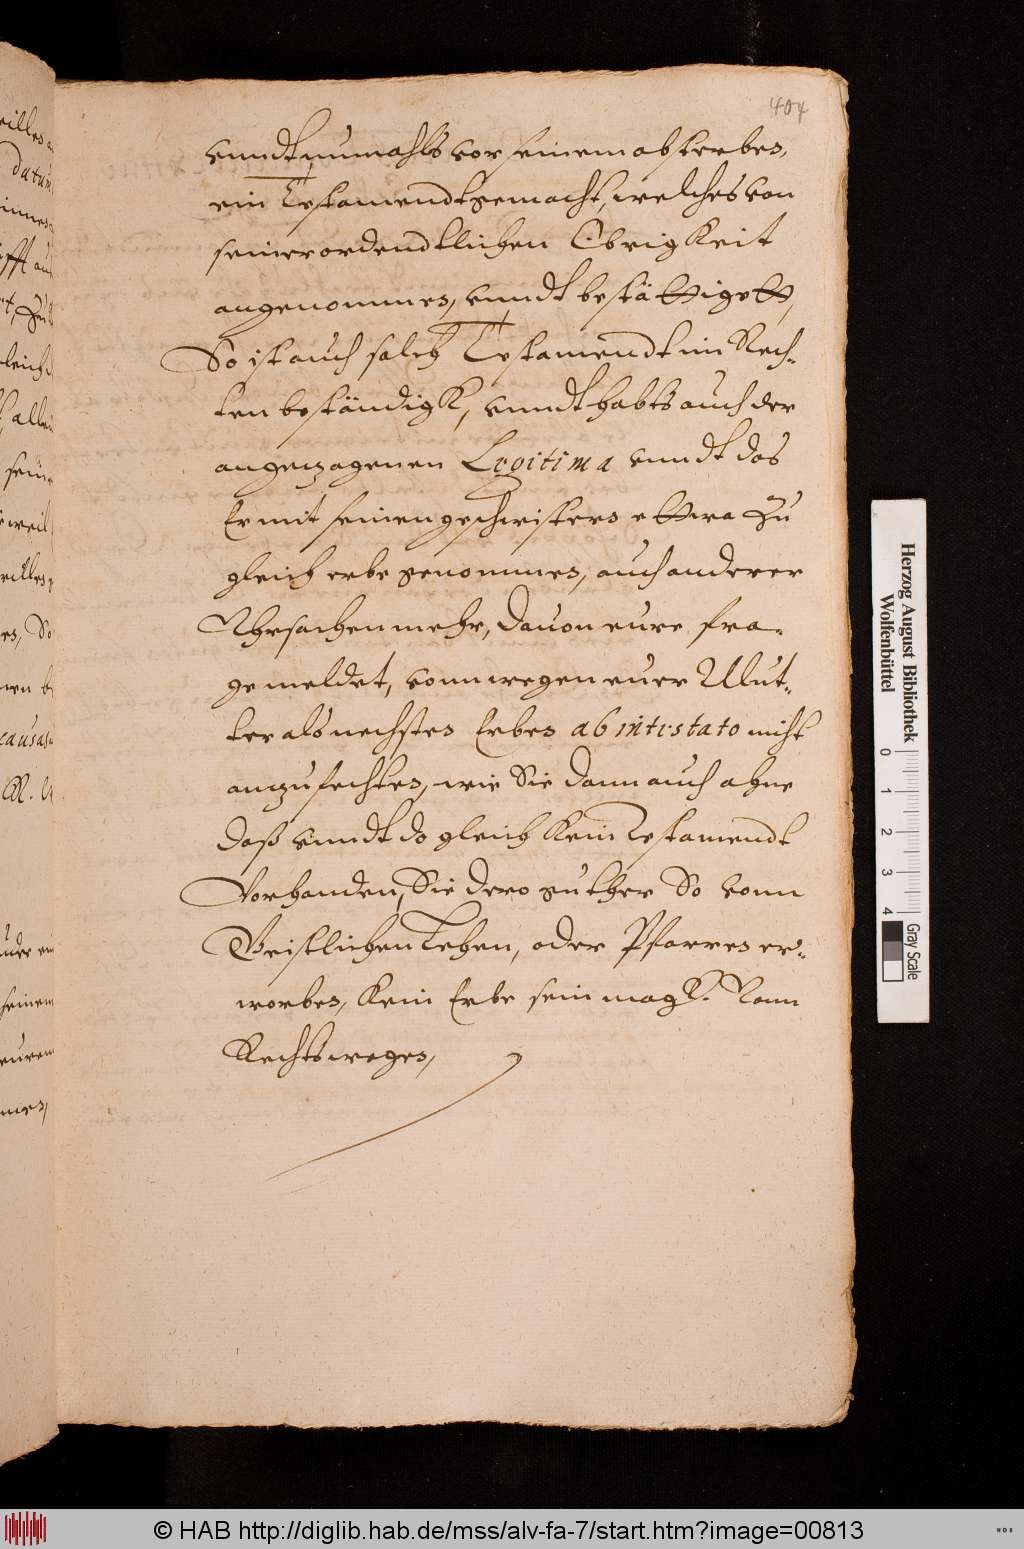 404
vnndt numahls vor seinem absterben,
ein Testamendt gemacht, welches von
seiner ordendtlichen Obrigkeit
angenommen, vnndt bestättigett,
So ist auch solch Testamendt im Rech-
ten beständigk, vnndt habts auch der
angezogenen Legitima vnndt das
Er mit seinen geschwistern ettwa zu
gleich erbe genommen, auch anderer
Vhrsachen mehr, dauon eure fra-
ge meldet, vonn wegen euer Mut-
ter als nechsten Erben ab intestato nicht
anzufechten, wie Sie dann auch ahne
daß vnndt do gleich kein Testamendt
vorhanden, Sie dero guther So vonn
Geistlichen Lehen, oder Pfarren er-
worben, kein Erbe sein magk. Vonn
Rechts wegen,
datum
So
causas
Herzog August Bibliothek
Wolfenbüttel
0 1 2 3 4
Gray Scale
© HAB http://diglib.hab.de/mss/alv-fa-7/start.htm?image=00813